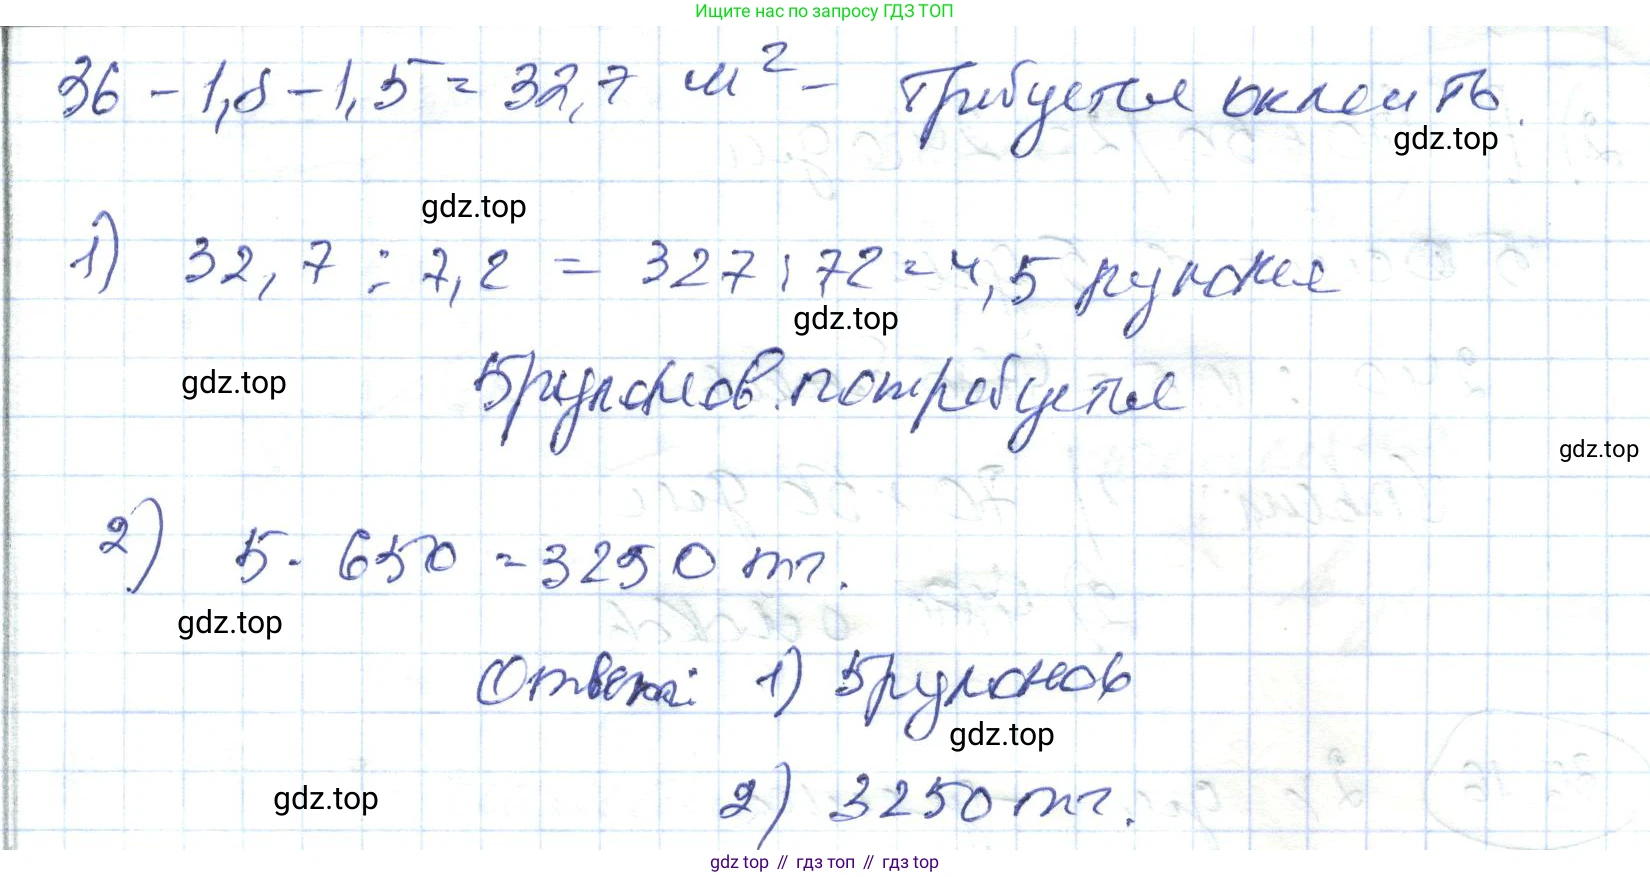 Ищите нас по запросу ГДЗ ТОП
36 - 1,8 - 1,5 = 32,7 м² - требуется оклеить.
gdz.top
gdz.top
1) 32,7 : 7,2 = 327 : 72 = 4,5 рулона
gdz.top
gdz.top
5 рулонов потребуется
gdz.top
2) 5 · 650 = 3250 тг.
gdz.top
Ответ: 1) 5 рулонов
gdz.top
gdz.top
2) 3250 тг.
gdz top // гдз топ // гдз top